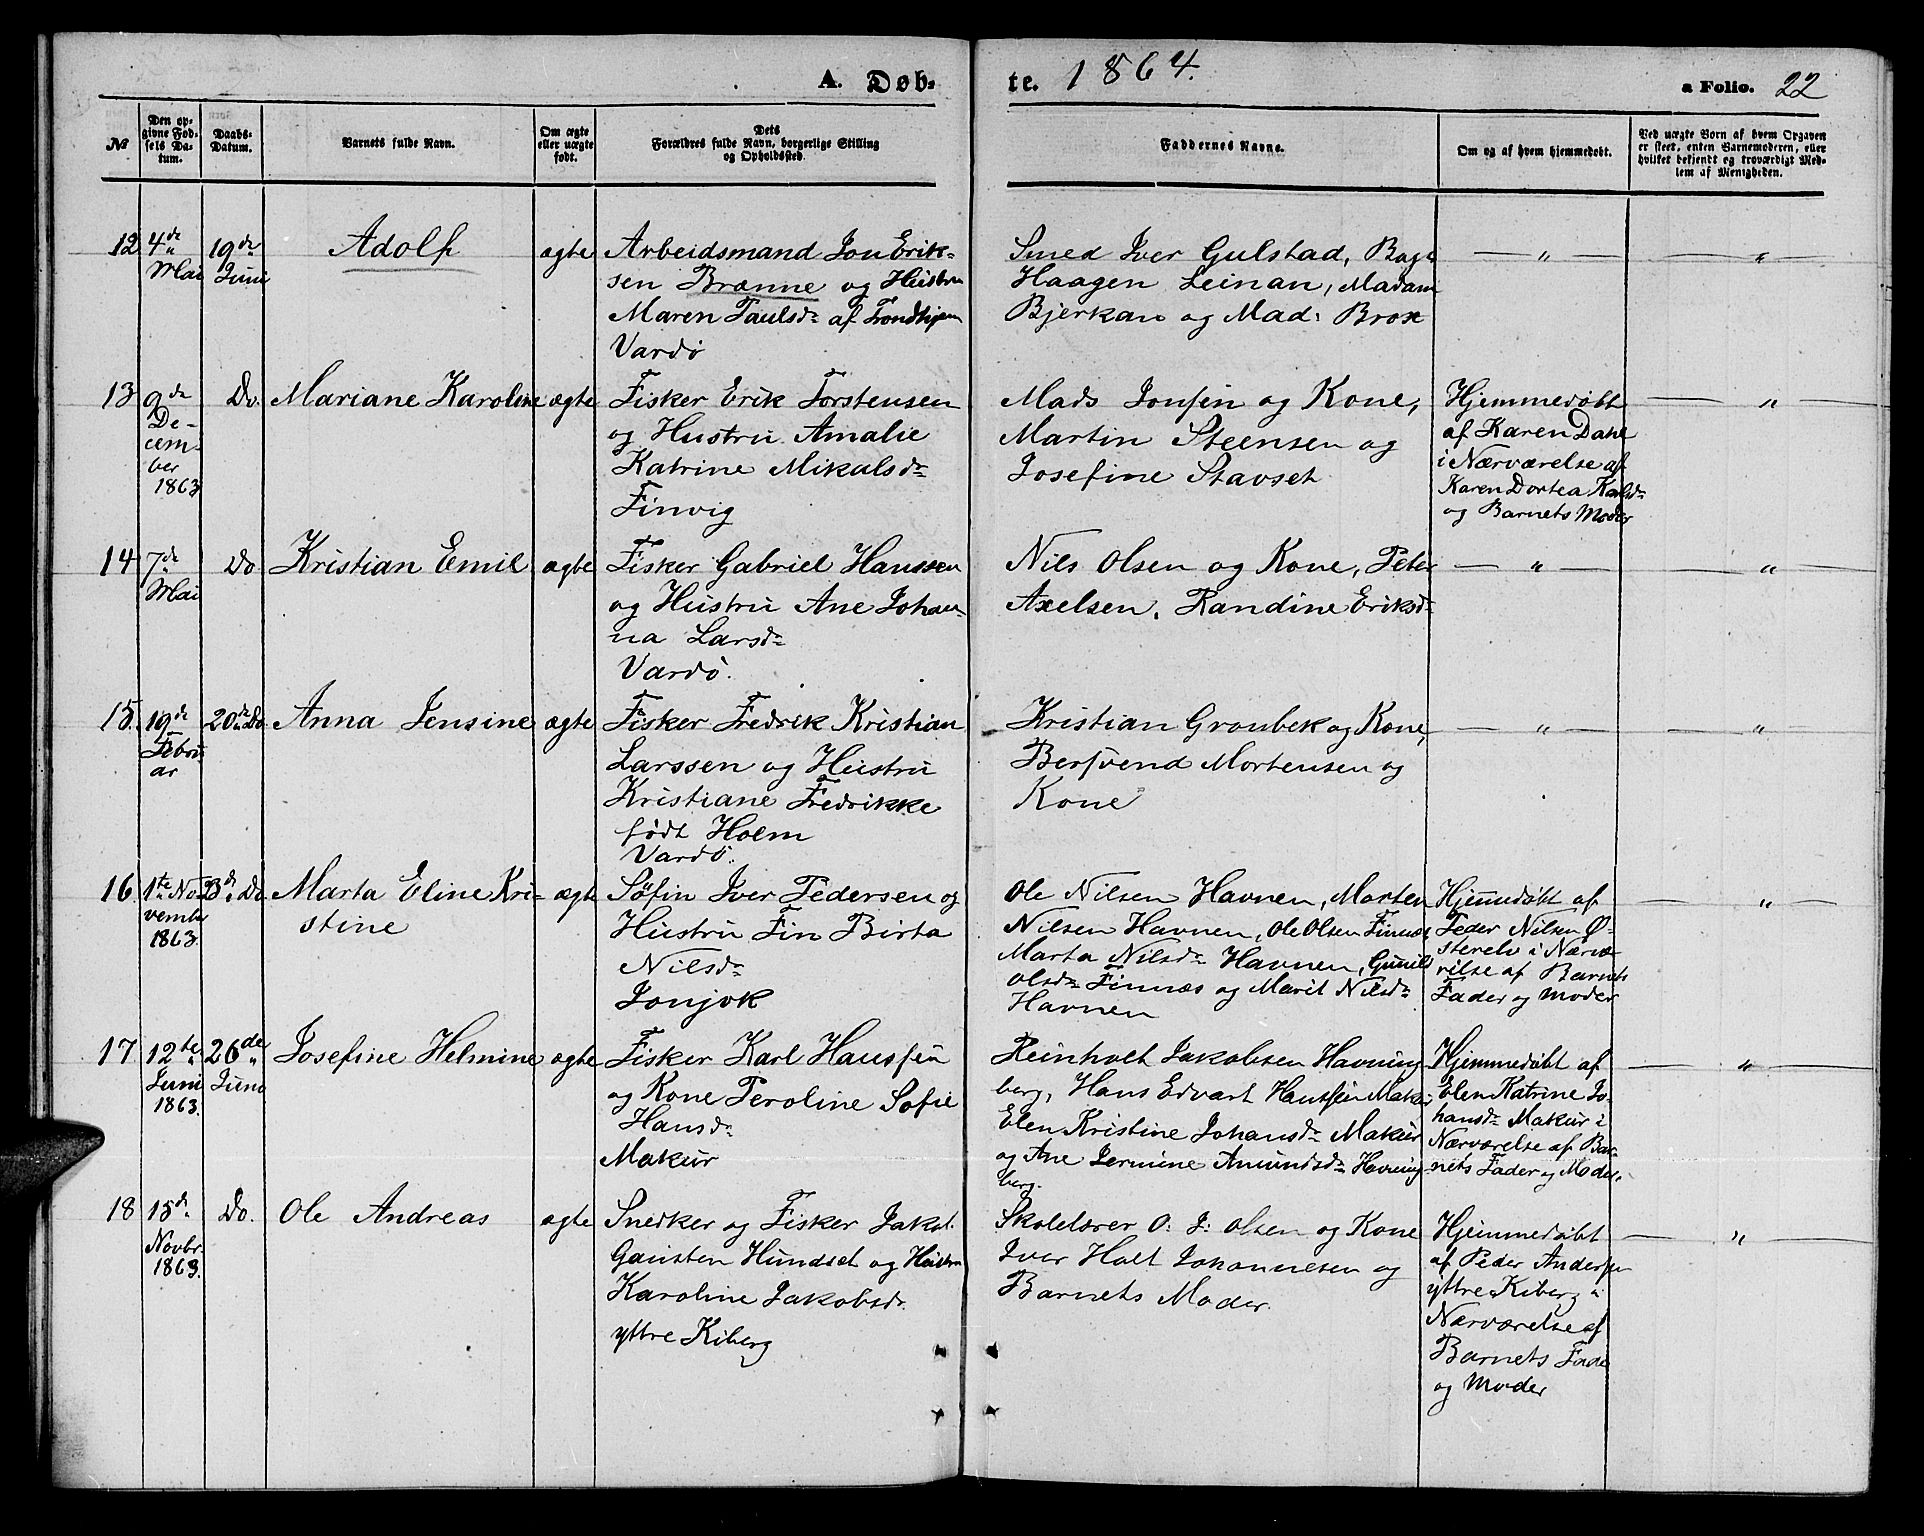 A. Døb-
te. 1864.
a Folio. 22
№
Den op-
givne Fød-
sels Da-
tum.
Daabs-
Datum.
Barnets fulde Navn.
Om ægte
eller uægte
født.
Dets
Forældres fulde Navn, borgerlige Stilling
og Opholdsted.
Faddernes Navne.
Om og af hvem hjemmedøbt.
Ved uægte Born af hvem Opgaven
er skeet, enten Barnemoderen, eller
hvilket bekjendt og troværdigt Med-
lem af Menigheden.
12
4de
Mai
19de
Juni
Adolf
ægte
Arbeidsmand Jon Erik-
sen Brænne og Hustru
Maren Paulsdr af Trondhjem
Vardö
Smed Iver Gulstad, Bager
Haagen Leinan, Madam
Bjerkan og Mad: Brox
— " —
— " —
13
9de
De-
cem-
ber
1863
Do.
Mariane Karoline
ægte
Fisker Erik Torstensen
og Hustru Amalie
Katrine Mikalsdr
Finvig
Mads Jonsen og Kone,
Martin Steensen og
Josefine Stavset
Hjemmedöbt
af Karen Dahl
i Nærværelse af
Karen Dortea Karlsdr
og Barnets Moder
— " —
14
7de
Mai
Do
Kristian Emil
ægte
Fisker Gabriel Hanssen
og Hustru Ane Johan-
na Larsdr
Vardö.
Nils Olsen og Kone, Peter
Axelsen, Randine Eriksdr
— " —
— " —
15.
19de
Febru-
ar
20de Do.
Anna Jensine
ægte
Fisker Fredrik Kristian
Larssen og Hustru
Kristiane Fredrikke
født Holm
Vardö.
Kristian Gronbek og Kone,
Bersvend Mortensen og
Kone
— " —
— " —
16
1ste No-
vember
1863.
23de Do.
Marta Eline Kri-
stine
ægte
Söfin Iver Pedersen og
Hustru Fin Birta
Nilsdr
Jonjok
Ole Nilsen Havnen, Morten
Nilsen Havnen, Ole Olsen Finnæs
Marta Nilsdr Havnen, Gunild
Olsdr Finnæs og Marit Nilsdr
Havnen
Hjemmedöbt af
Peder Nilsen Ø-
sterelv i Nærvæ-
relse af Barnets
Fader og Moder
— " —
17
12te
Juni
1863.
26de
Juni
Josefine Helmine
ægte
Fisker Karl Hanssen
og Kone Peroline Sofie
Hansdr
Makur
Reinholt Jakobsen Havning-
berg, Hans Edvart Hanssen Makur,
Elen Kristine Johansdr Makur
og Ane Jermine Amundsdr Havning-
berg.
Hjemmedøbt af
Elen Katrine Jo-
hansdr Makur i
Nærværelse af Bar-
nets Fader og Moder.
— " —
18
15de
Novbr.
1863.
Do.
Ole Andreas
ægte
Snedker og Fisker Jakob
Gausten Hundset og Hustru
Karoline Jakobsdr
yttre Kiberg
Skolelærer O: J: Olsen og Kone
Iver Holt Johannesen og
Barnets Moder.
Hjemmedøbt
af Peder Andersen
yttre Kiberg i
Nærværelse af
Barnets Fader
og Moder
— " —